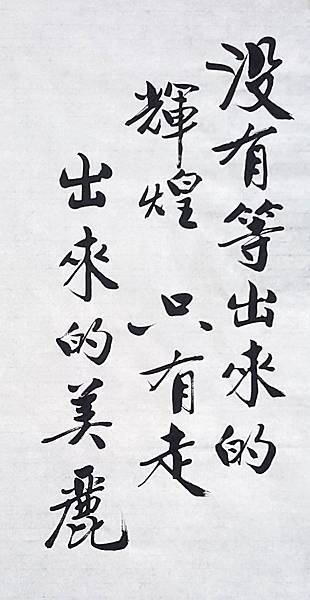 没有等出來的
輝煌 只有走
出來的美麗